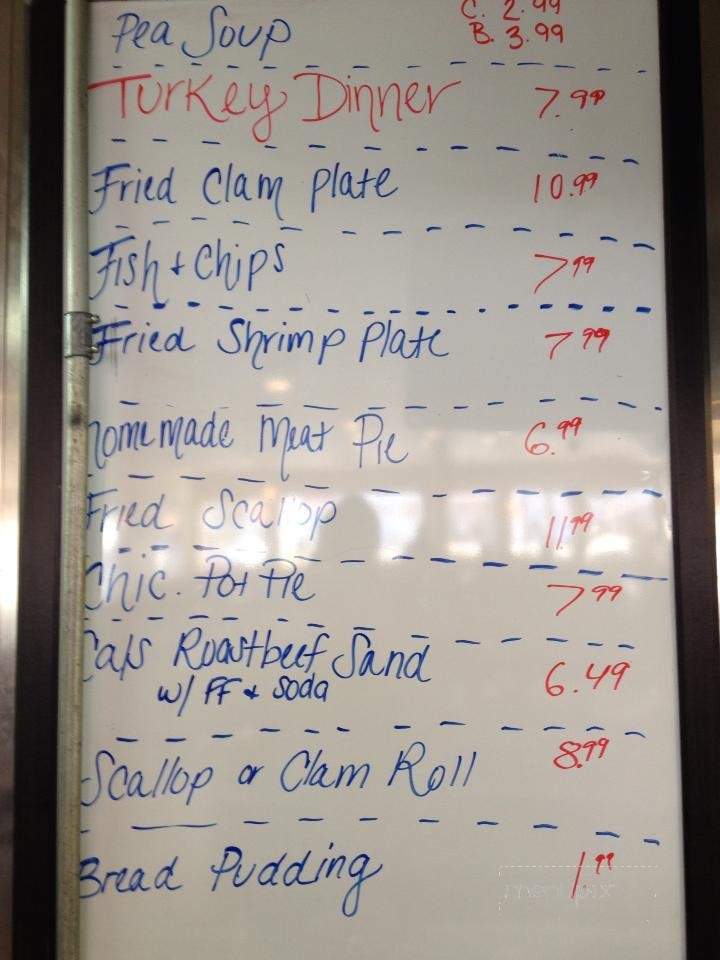 C. 2.99
Pea Soup B. 3.99
Turkey Dinner 7.99
Fried Clam Plate 10.99
Fish + Chips 7.99
Fried Shrimp Plate 7.99
homemade Meat Pie 6.99
Fried Scallop 11.99
Chic. Pot Pie 7.99
Roastbeef Sand 6.49
w/ FF + Soda
Scallop or Clam Roll 8.99
Bread Pudding 1.99